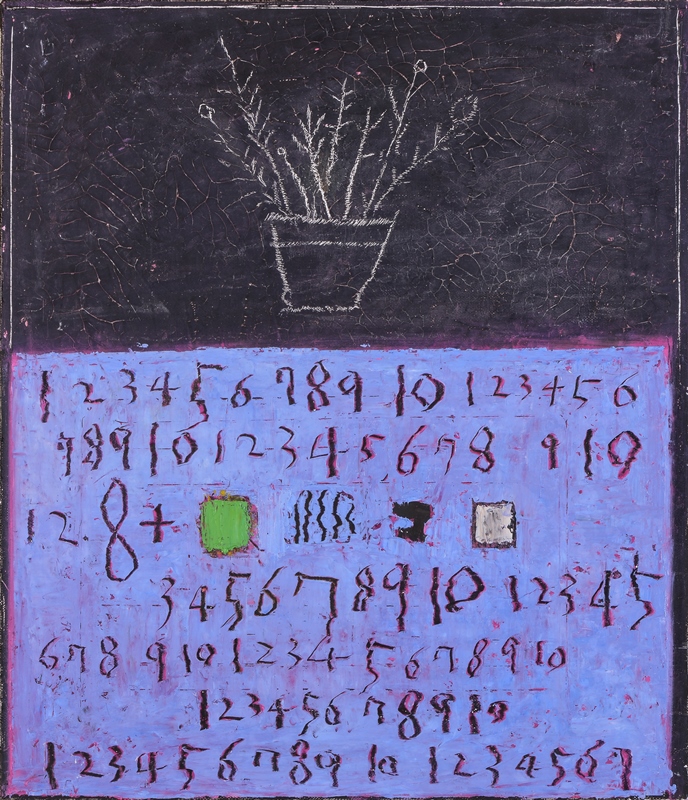 1 2 3 4 5 6 7 8 9 10 1 2 3 4 5 6
7 8 9 10 1 2 3 4 5 6 7 8 9 10
1 2. 8 +
3 4 5 6 7 8 9 10 1 2 3 4 5
6 7 8 9 10 1 2 3 4 5 6 7 8 9 10
1 2 3 4 5 6 7 8 9 10
1 2 3 4 5 6 7 8 9 10 1 2 3 4 5 6 7